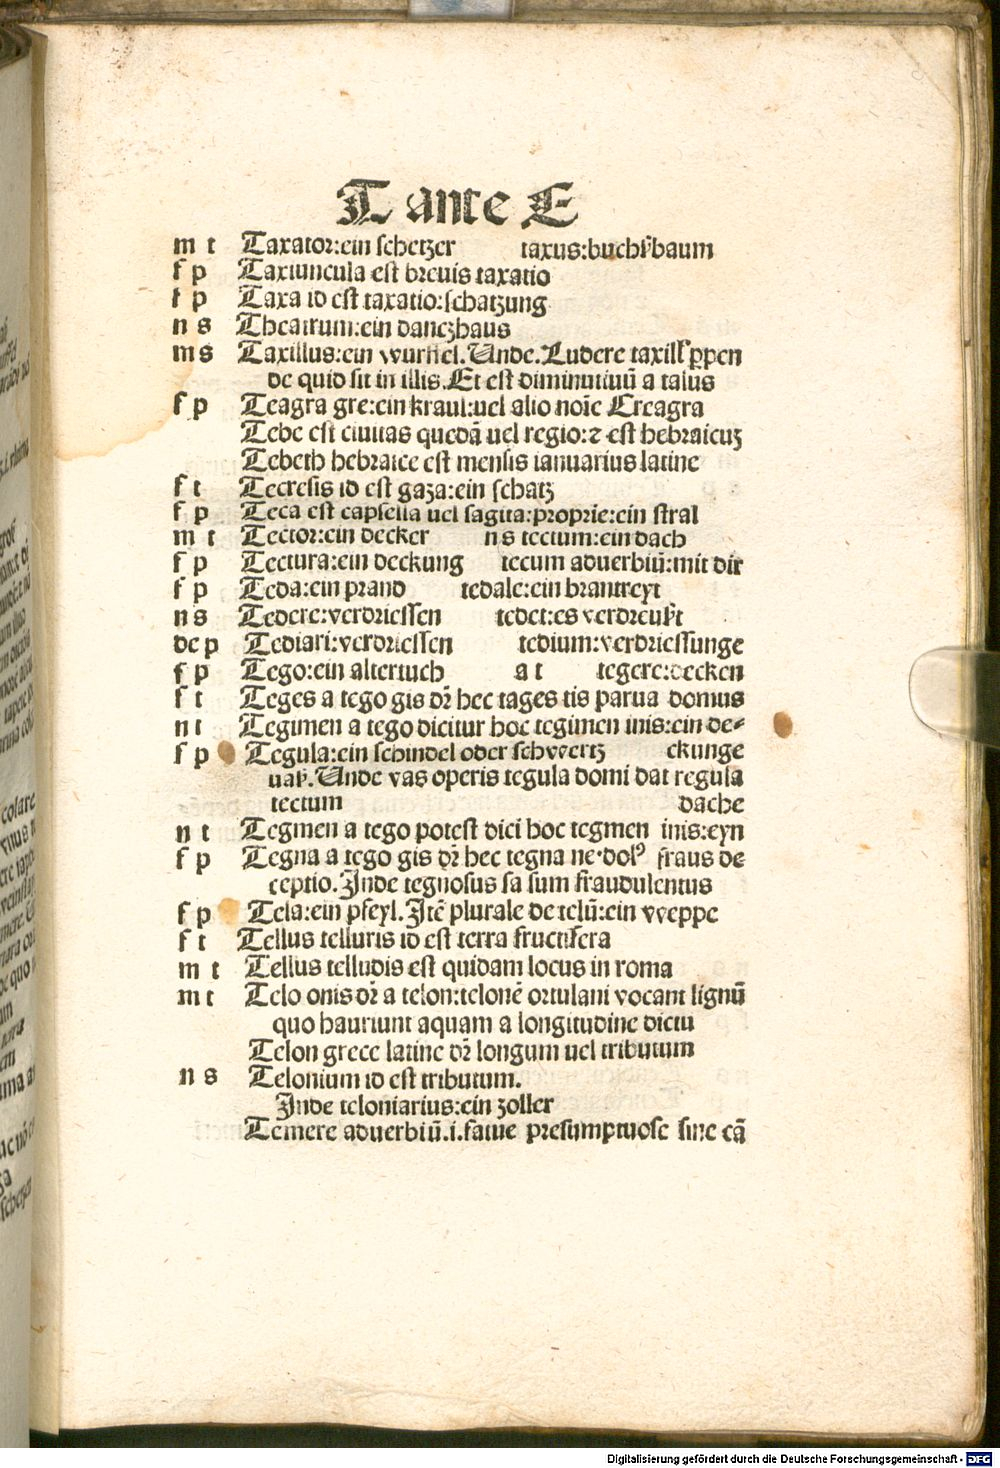 T ante E
m t Taxator:ein schetzer taxus:buchſbaum
f p Taxiuncula est breuis taxatio
f p Taxa id est taxatio:schatzung
n s Theatrum:ein danczhaus
m s Taxillus:ein wurffel.Unde.Ludere taxill ꝑpen
de quid sit in illis.Et est diminutiuū a talus
f p Teagra gre:ein kraul:uel alio noīe Creagra
Tebe est ciuitas quedā uel regio:⁊ est hebraicuʒ
Tebeth hebraice est mensis ianuarius latine
f t Tecresis id est gaza:ein schatz
f p Teca est capsella uel sagita:proprie:ein stral
m t Tector:ein decker n s tectum:ein dach
f p Tectura:ein deckung tecum aduerbiū:mit dir
f p Teda:ein prand tedale:ein brantreyt
n s Tedere:verdriessen tedet:es verdreuſt
de p Tediari:verdriessen tedium:verdriessunge
f p Tego:ein altertuch a t tegere:decken
f t Teges a tego gis dr̄ hec tages tis parua domus
n t Tegimen a tego dicitur hoc tegimen inis:ein de⸗
f p Tegula:ein schindel oder schweertz ckunge
uaſ.Unde vas operis tegula domi dat regula
tectum dache
n t Tegmen a tego potest dici hoc tegmen inis:eyn
f p Tegna a tego gis dr̄ hec tegna ne·dolꝰ fraus de
ceptio.Inde tegnosus sa sum fraudulentus
f p Tela:ein pfeyl.Itē plurale de telū:ein weppe
f t Tellus telluris id est terra fructifera
m t Tellus telludis est quidam locus in roma
m t Telo onis dr̄ a telon:telonē ortulani vocant lignū
quo hauriunt aquam a longitudine dictu
Telon grece latine dr̄ longum uel tributum
n s Telonium id est tributum.
Inde teloniarius:ein zoller
Temere aduerbiū.i.fatue presumptuose sine cā
Digitalisierung gefördert durch die Deutsche Forschungsgemeinschaft - DFG